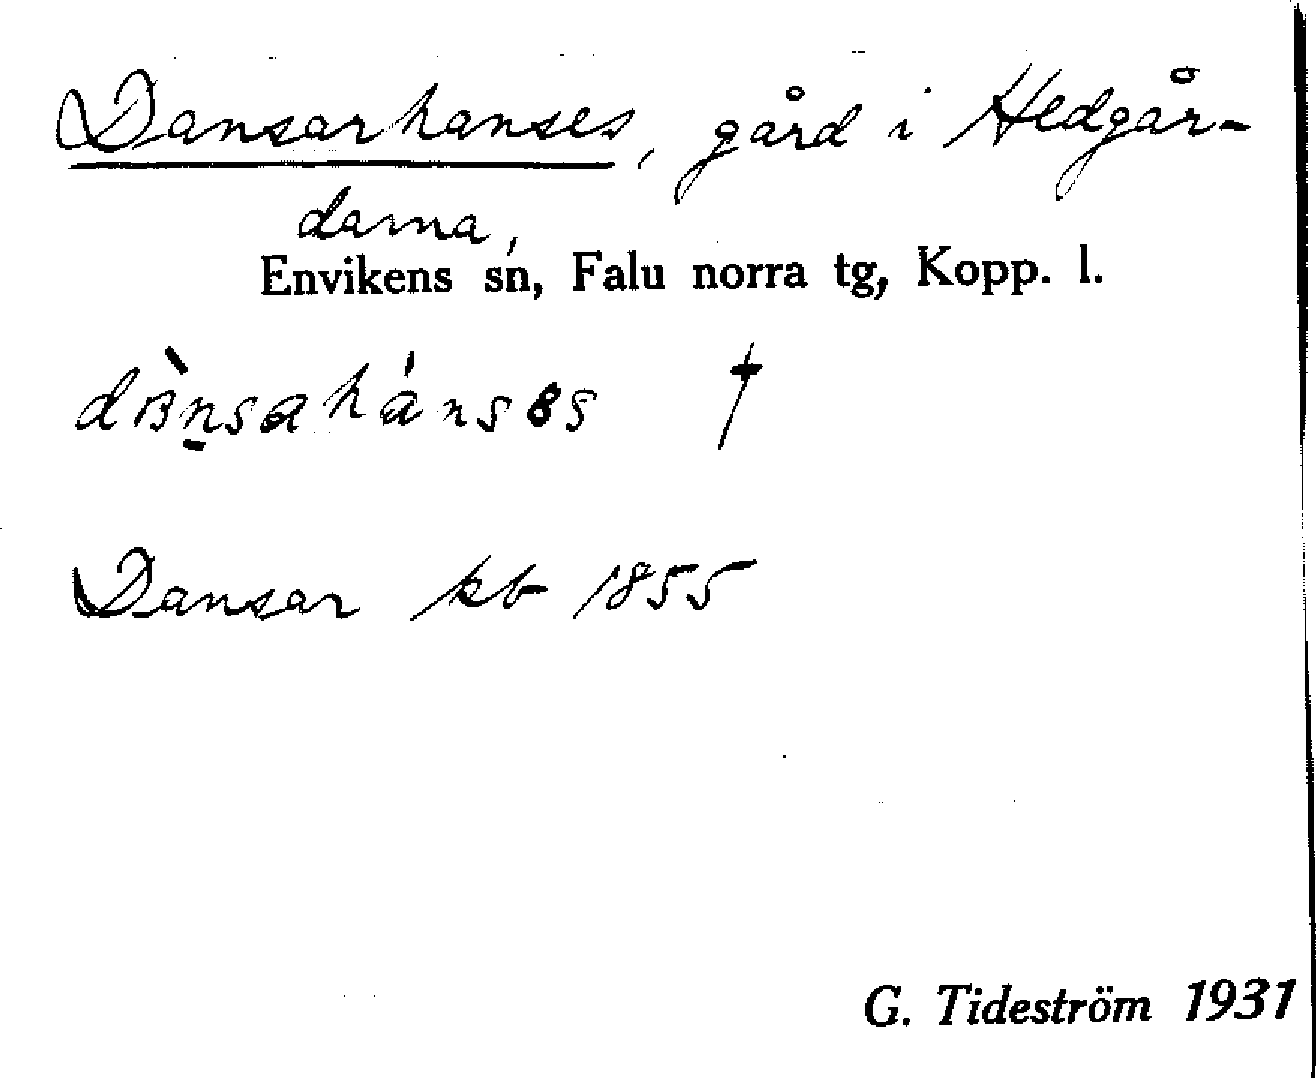 Dansarhanses, gård i Hedgår-
darna,
Envikens sn, Falu norra tg, Kopp. l.
†
Dansar kb 1855
G. Tideström 1931